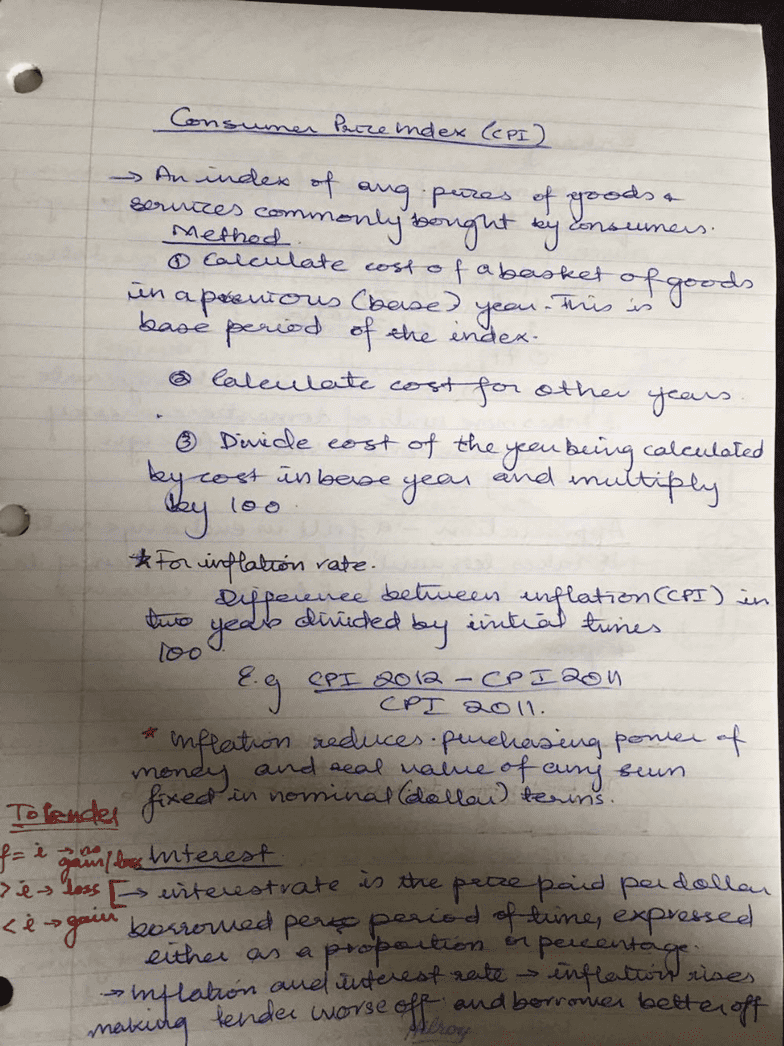 Consumer Prize Index (CPI)
→ An index of avg. prizes of goods &
services commonly bought by consumers.
Method.
① Calculate cost of a basket of goods
in a previous (base) year. This is
base period of the index.
② Calculate cost for other years.
③ Divide cost of the year being calculated
by cost in base year and multiply
by 100.
* For inflation rate.
Difference between inflation (CPI) in
two years divided by initial times
100
E.g CPI 2012 - CPI 2011
CPI 2011.
* Inflation reduces purchasing power of
money and real value of any sum
fixed in nominal (dollar) terms.
To lender
f = i → no gain/loss
> i → loss
< i → gain
Interest
[→ interest rate is the prize paid per dollar
borrowed per period of time, expressed
either as a proportion or percentage.
→ Inflation and interest rate → inflation rises
making lender worse off and borrower better off